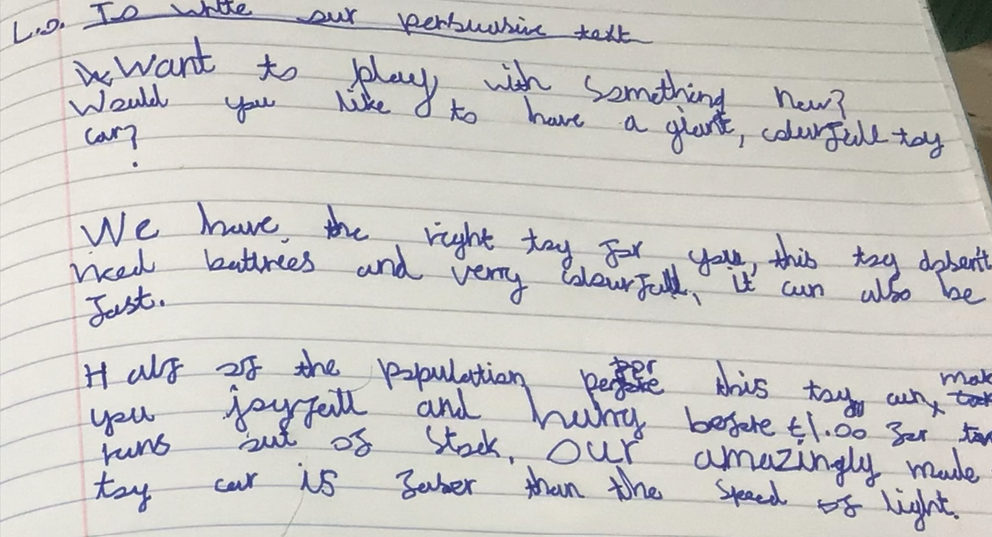 L.O. To write our persuasive text
Want to play with something new?
Would you like to have a giant, colourfull toy
car?
We have the right toy for you, this toy dosen't
need battrees and verry colourfull, it can also be
fast.
Half of the population perfer this toy, can mak
you joyfull and hurry before £1.00 for
runs out of stock, our amazingly made
toy car is faser than the speed of light.